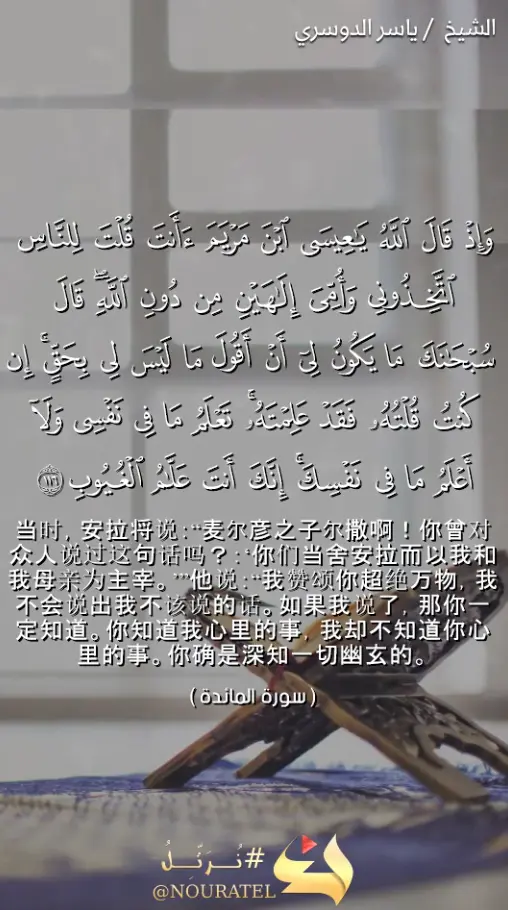 الشيخ / ياسر الدوسري
وَإِذْ قَالَ ٱللَّهُ يَٰعِيسَى ٱبْنَ مَرْيَمَ ءَأَنتَ قُلْتَ لِلنَّاسِ
ٱتَّخِذُونِي وَأُمِّىَ إِلَٰهَيْنِ مِن دُونِ ٱللَّهِۖ قَالَ
سُبْحَٰنَكَ مَا يَكُونُ لِىٓ أَنْ أَقُولَ مَا لَيْسَ لِى بِحَقٍّۚ إِن
كُنتُ قُلْتُهُۥ فَقَدْ عَلِمْتَهُۥۚ تَعْلَمُ مَا فِى نَفْسِى وَلَآ
أَعْلَمُ مَا فِى نَفْسِكَۚ إِنَّكَ أَنتَ عَلَّٰمُ ٱلْغُيُوبِ ١١٦
当时，安拉将说：“麦尔彦之子尔撒啊！你曾对
众人说过这句话吗？：‘你们当舍安拉而以我和
我母亲为主宰。’”他说：“我赞颂你超绝万物，我
不会说出我不该说的话。如果我说了，那你一
定知道。你知道我心里的事，我却不知道你心
里的事。你确是深知一切幽玄的。
( سورة المائدة )
#نُرَتِّلُ
@NOURATEL